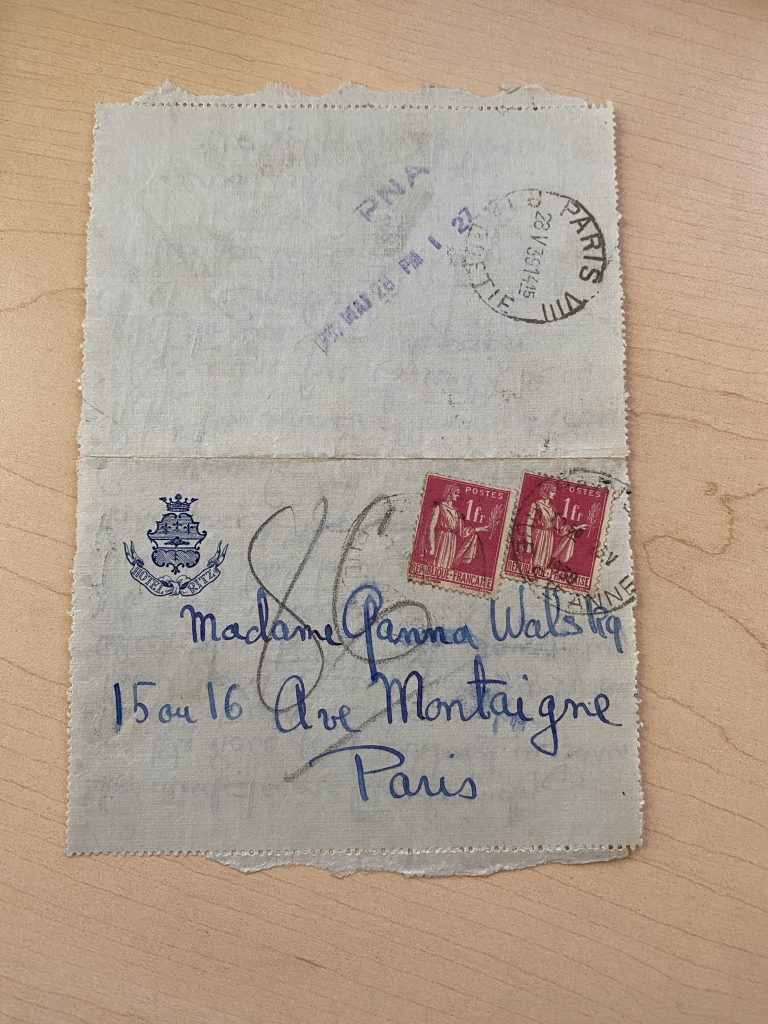 PNA
MAI 28 PM 1 27
PARIS VIII
28 V 39 1415
BOETIE
HOTEL RITZ
86
POSTES
1fr
REPUBLIQUE-FRANCAISE
POSTES
1fr
REPUBLIQUE-FRANCAISE
Madame Ganna Walska
15 ou 16 Ave Montaigne
Paris